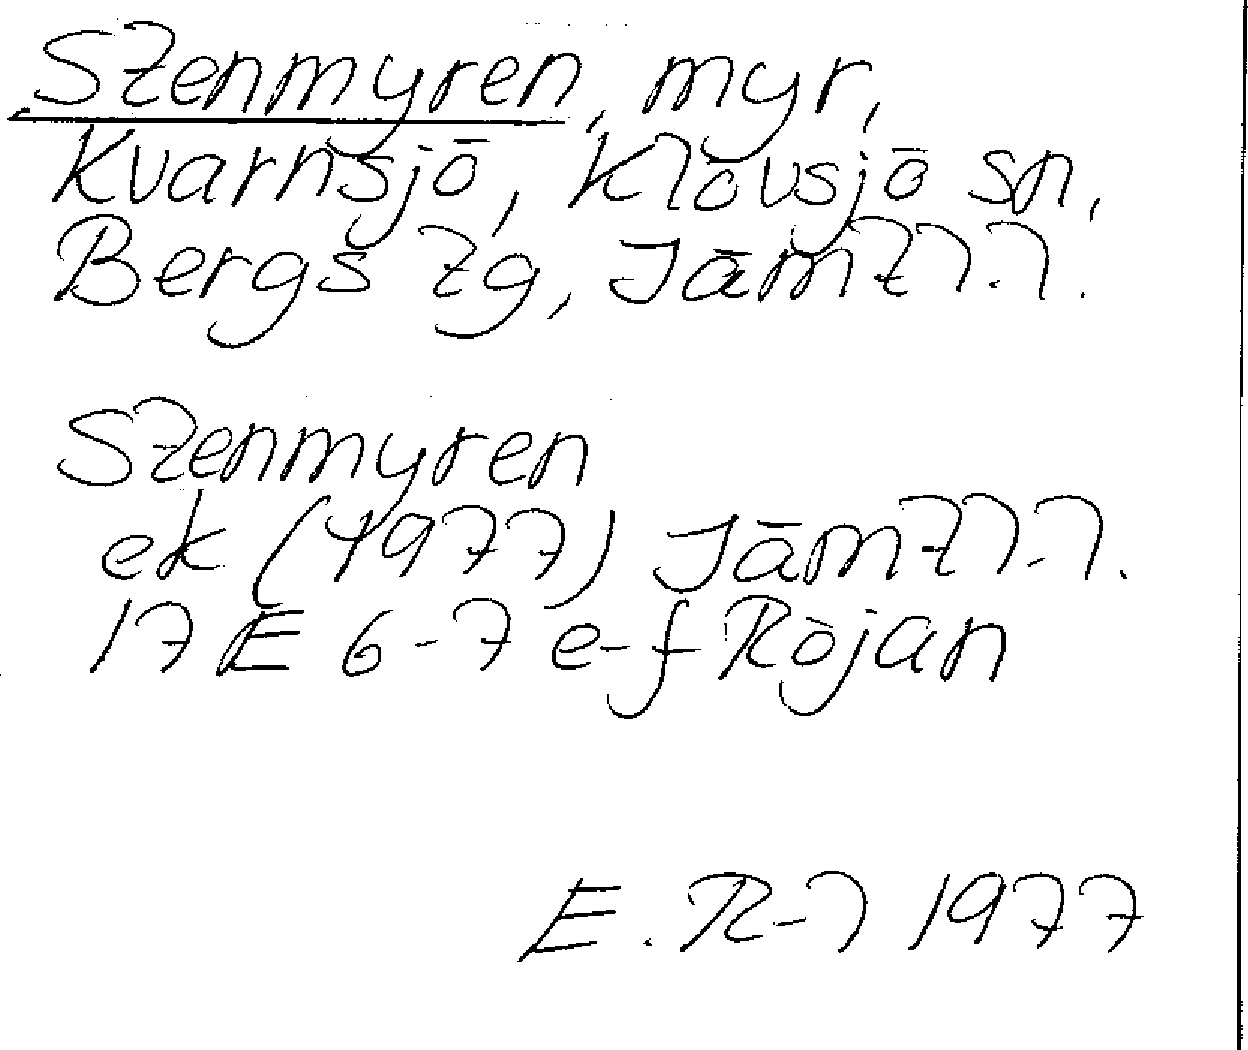 Stenmyren, myr,
Kvarnsjö, Klövsjö sn,
Bergs tg, Jämtl.l.
Stenmyren
ek (1977) Jämtl.l.
17E 6-7 e-f Röjan
E. R-l 1977